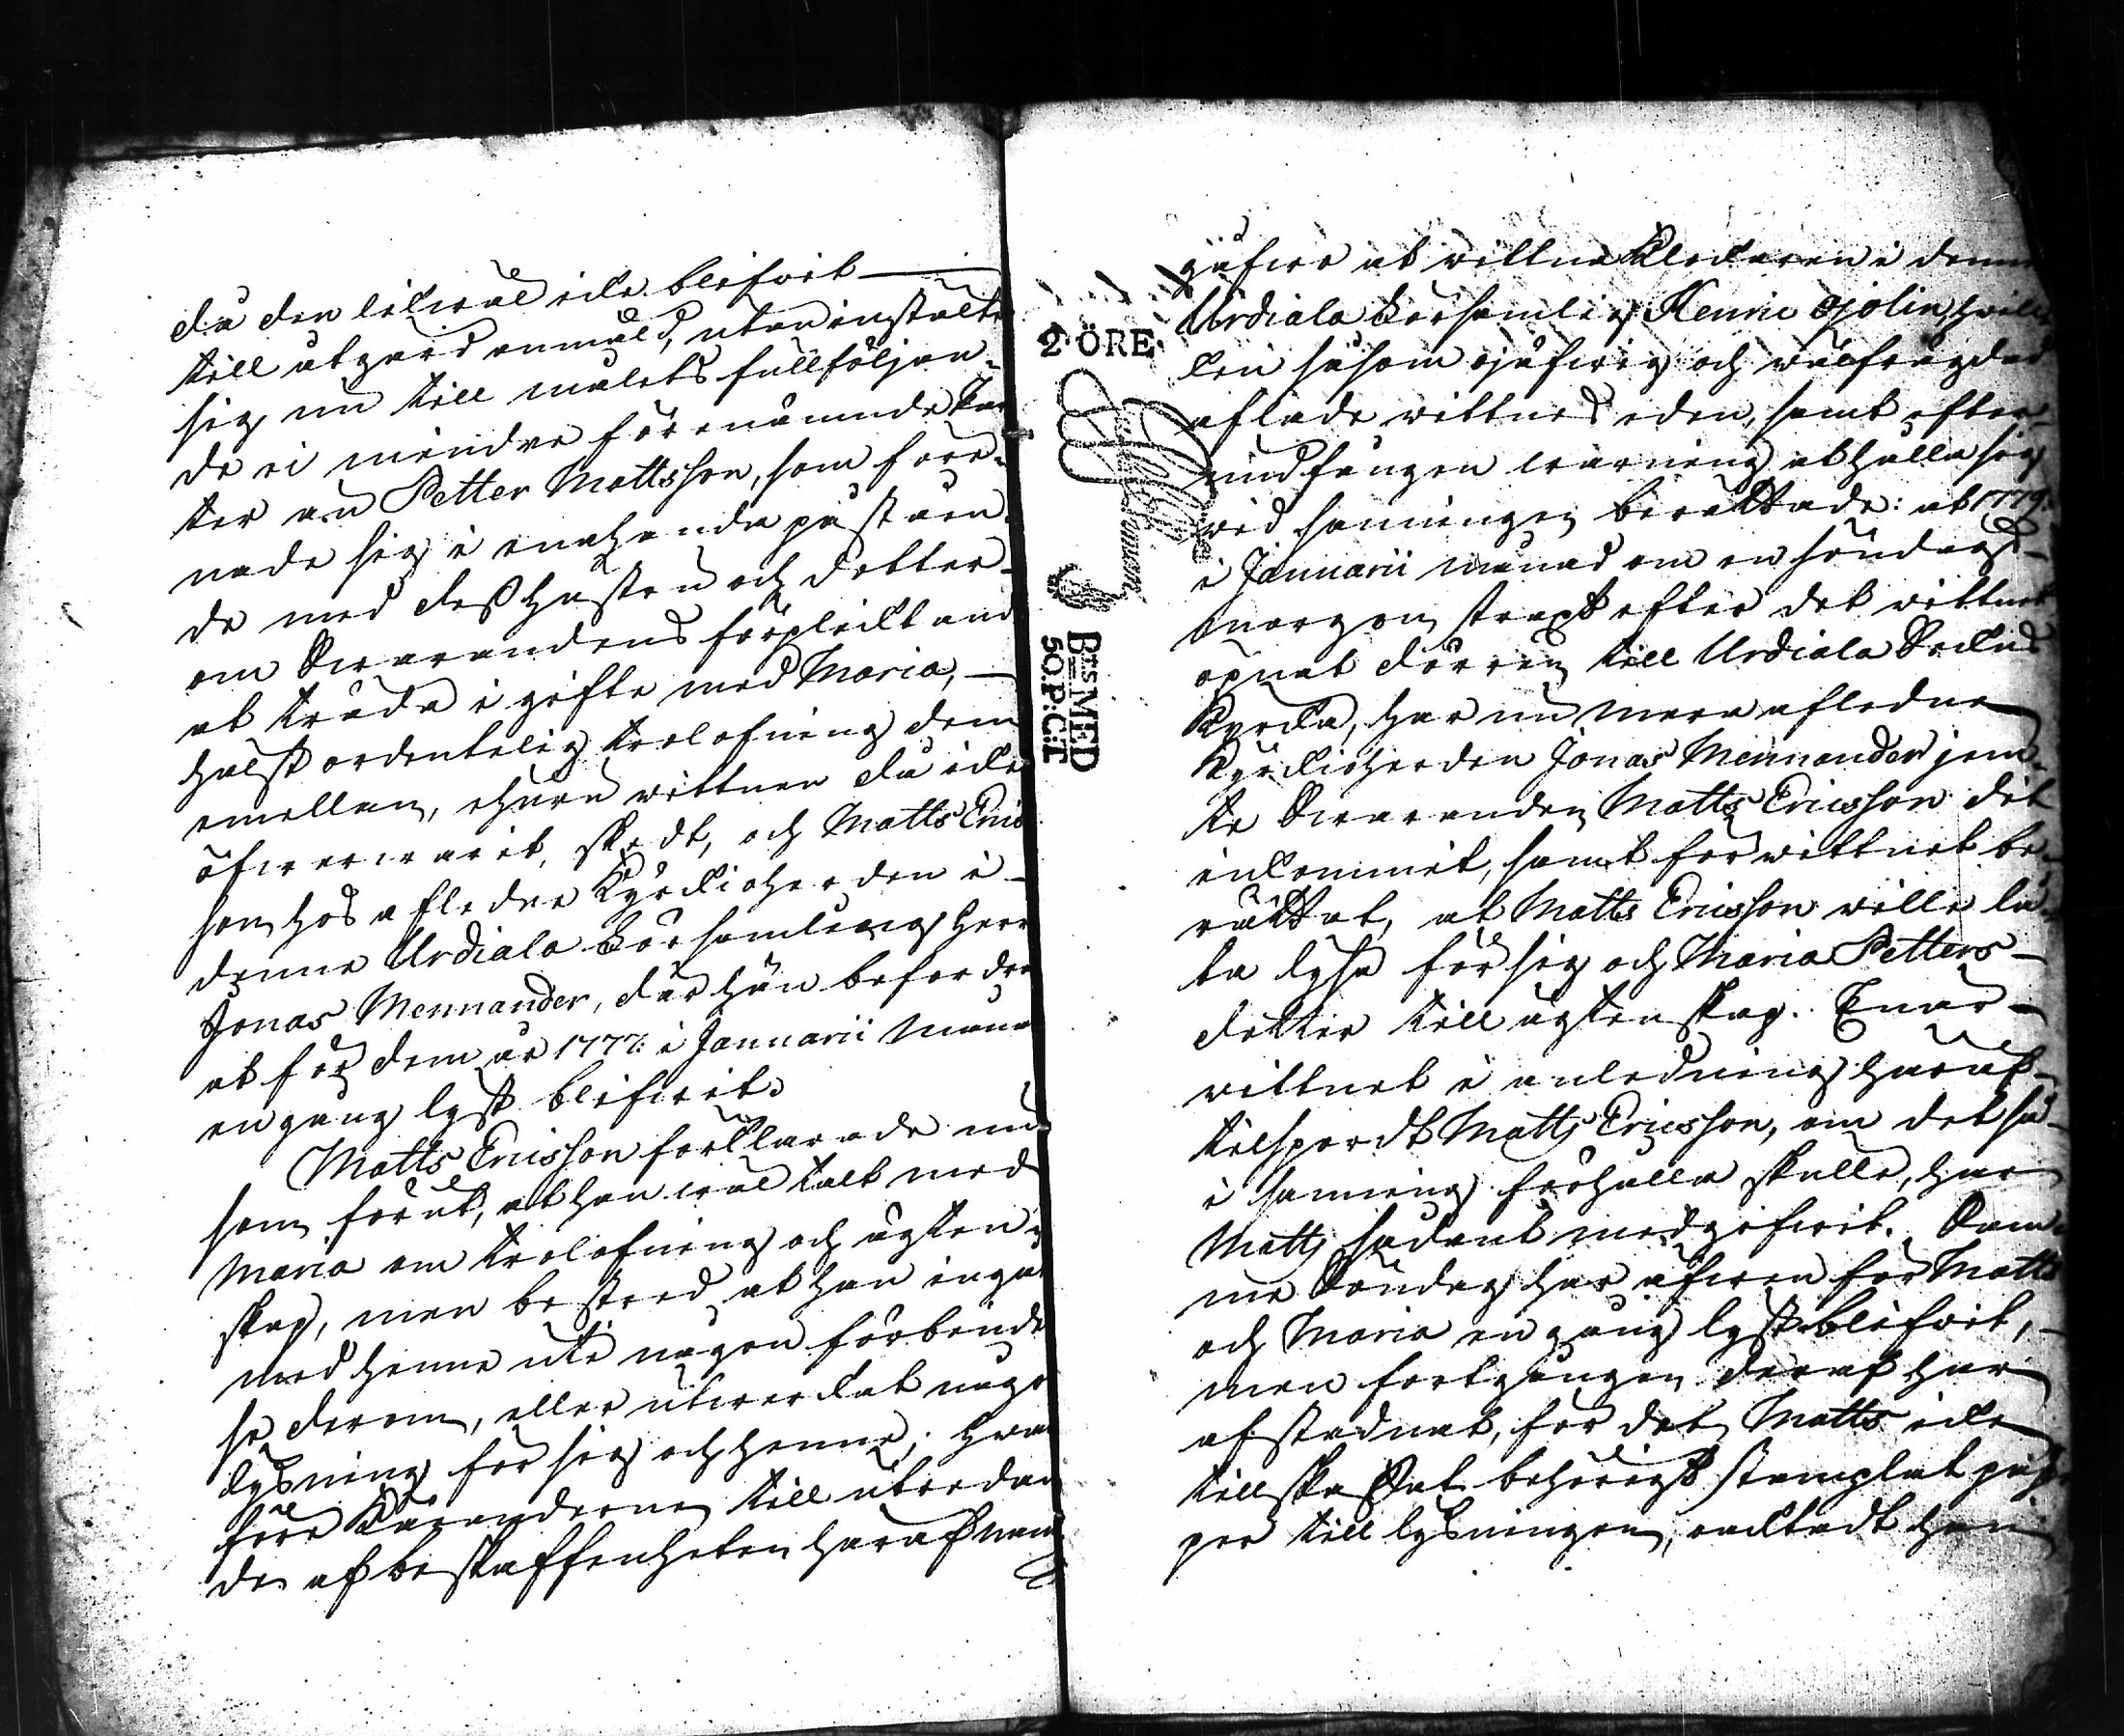 då den likwäl icke blifwit
till åtgärd anmäld, utan instälte
sig nu till målets fullföljan-
de ei mindre förenämnde Fa-
der än Petter Mattsson, som före-
nade sig i enahanda påståen-
de med dess hustru och dotter
om Swarandens förplicktand
at träda i gifte med Maria,
hälst ordentelig trolofning dem
emellan, ehuru wittnen då icke
öfwerwarit, skedt, och Matts Erics-
son hos afledne Kyrckioherden i
denna Urdiala Församling Herr
Jonas Mennander, där hän befordra
at för dem år 1777. i Januarii Månad
en gång lyst blifwit.
Matts Ericsson förklarade nu
som förut, at han wäl talt med
Maria om trolofning och ägten-
skap, men bestred at han ingåt
med henne uti någon förbindel-
se derom, eller utwerckat någo
lysning för sig och henne; hwar
före Käranderne till utredan-
de af beskaffenheten häraf nam
2·ÖRE·
Bts MED
50.P:C:T
gåfwo at wittna Klockaren i denna
Urdiala Församling Henric Hjolin, hwil-
ken såsom ojäfwig och wälfrägdad
aflade wittnes eden, samt efter
undfången warning at hålla sig
wid sanningen berättade: at 1779.
i Januarii månad om en söndags-
morgon straxt efter det wittnet
öpnat dörren till Urdiala Sockns
Kyrcka, har nu mera afledne
Kyrckioherden Jonas Mennander jem-
te Swaranden Matts Ericsson dit
inkommit, samt för wittnet be-
rättat, at Matts Ericsson wille lå-
ta lysa för sig och Maria Petters-
dotter till ägtenskap. Enär
wittnet i anledning häraf
tilspordt Matts Ericsson, om det så
i sanning förhålla skulle, har
Matts sådant medgifwit. Sam-
me Söndag har äfwen för Matts
och Maria en gång lyst blifwit,
men fortgången deraf har
afstadnat, för det Matts icke
tillskaffat behörigt stämplat pap-
per till lysningen, ocktadt han